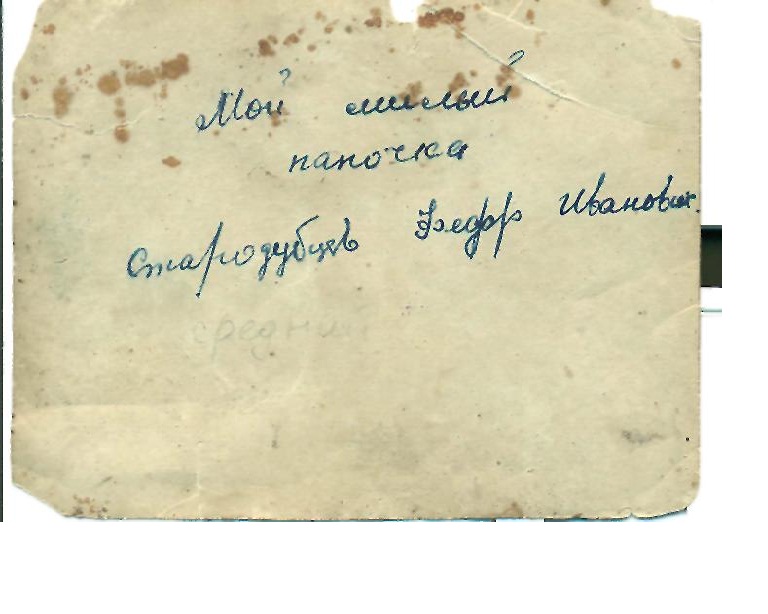 Мой милый
папочка
Стародубцев Федор Иванович.
средний